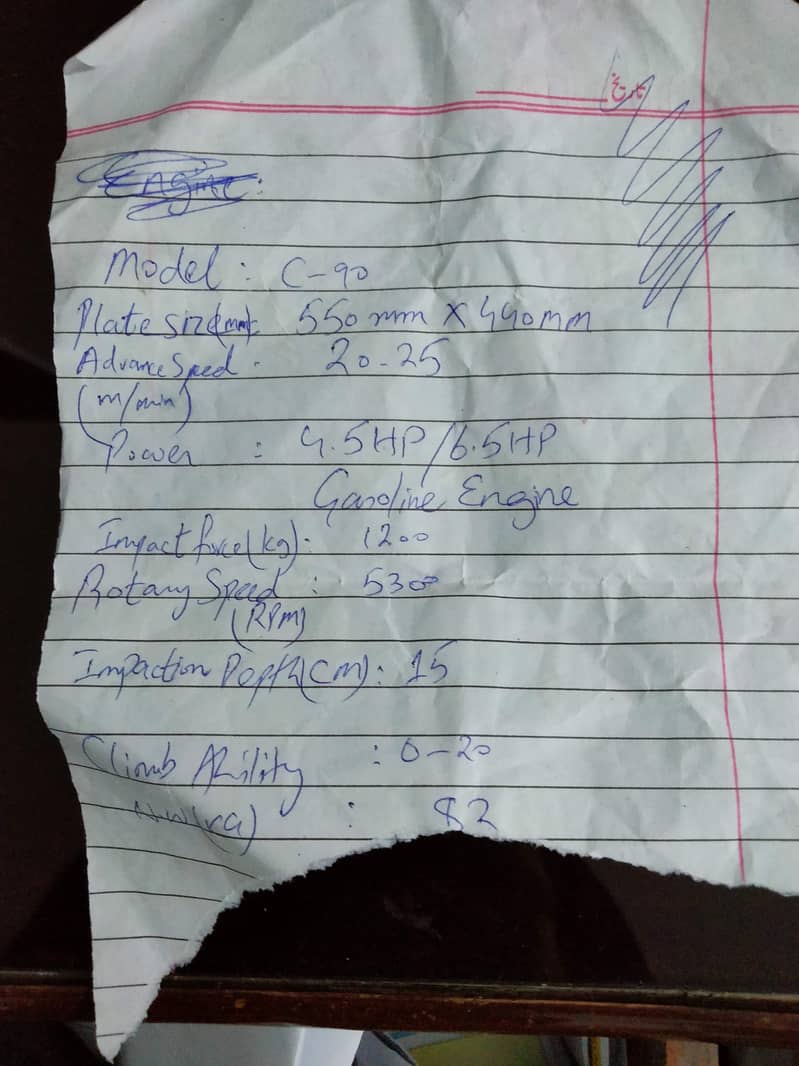 تاریخ
Engine:
Model : C-90
Plate size(mm): 550mm X 440mm
Advance Speed - 20-25
(m/min)
Power : 4.5HP/6.5HP
Gasoline Engine
Impact force(kg): 1200
Rotary Speed : 5300
(RPM)
Impaction Depth(cm): 15
Climb Ability : 0-20
N.W(KG) : 82